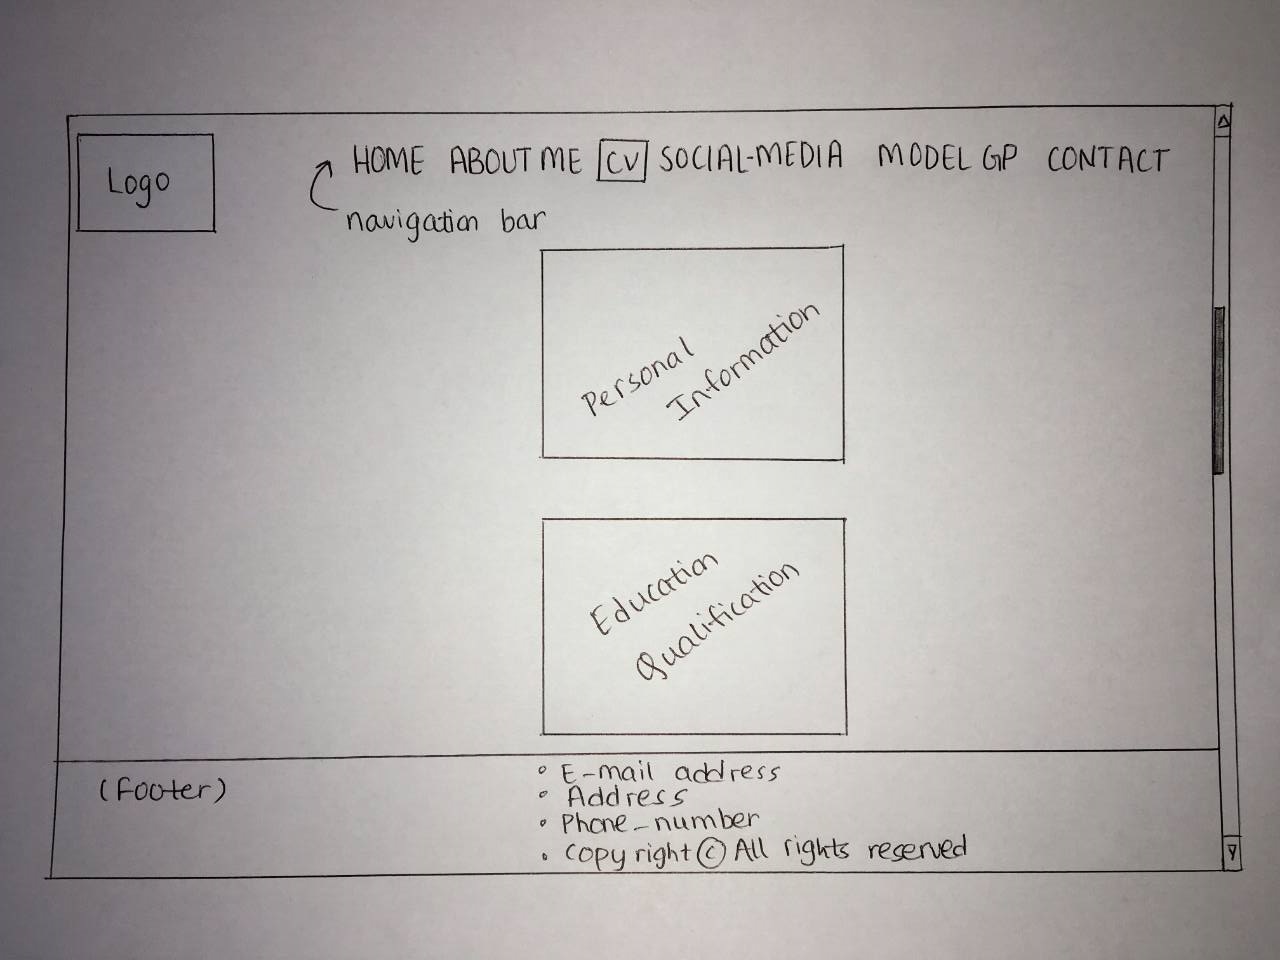 Logo
HOME ABOUT ME CV SOCIAL-MEDIA MODEL GP CONTACT
navigation bar
Personal
Information
Education
Qualification
(footer)
• E-mail address
• Address
• Phone-number
• Copyright © All rights reserved